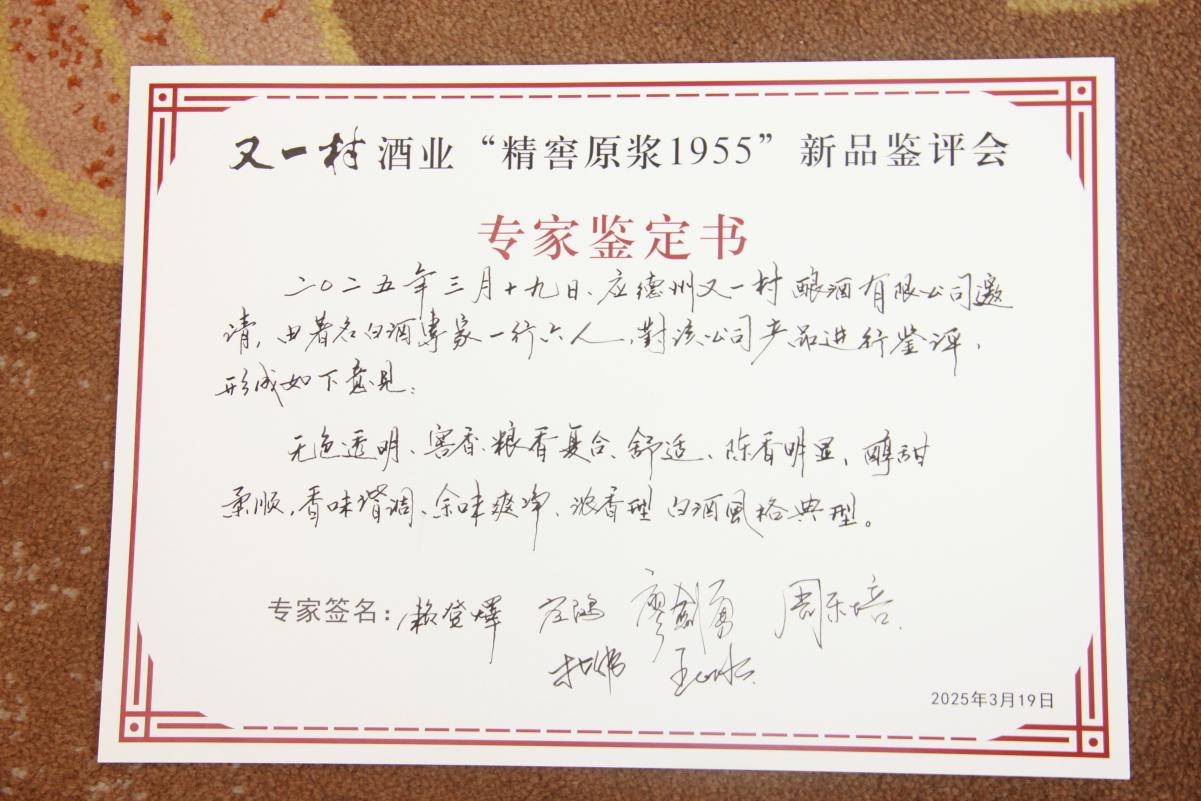 又一村酒业“精窖原浆1955”新品鉴评会
专家鉴定书
二〇二五年三月十九日、应德州又一村酿酒有限公司邀
请，由著名白酒專家一行六人，對该公司产品进行鉴评，
形成如下意见：
无色透明、窖香、粮香复合、舒适、陈香明显、醇甜
柔顺，香味谐调、余味爽净、浓香型白酒风格典型。
专家签名：赖登燡 廖勇 周
杜伟
2025年3月19日